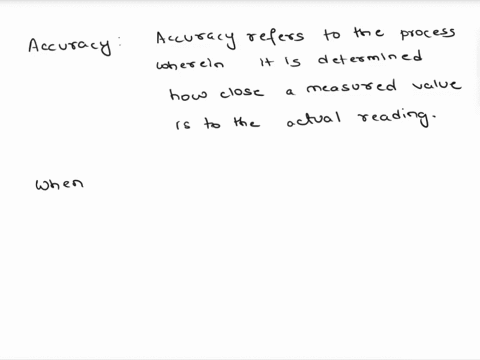 Accuracy: Accuracy refers to the process
wherein it is determined
how close a measured value
is to the actual reading.
when